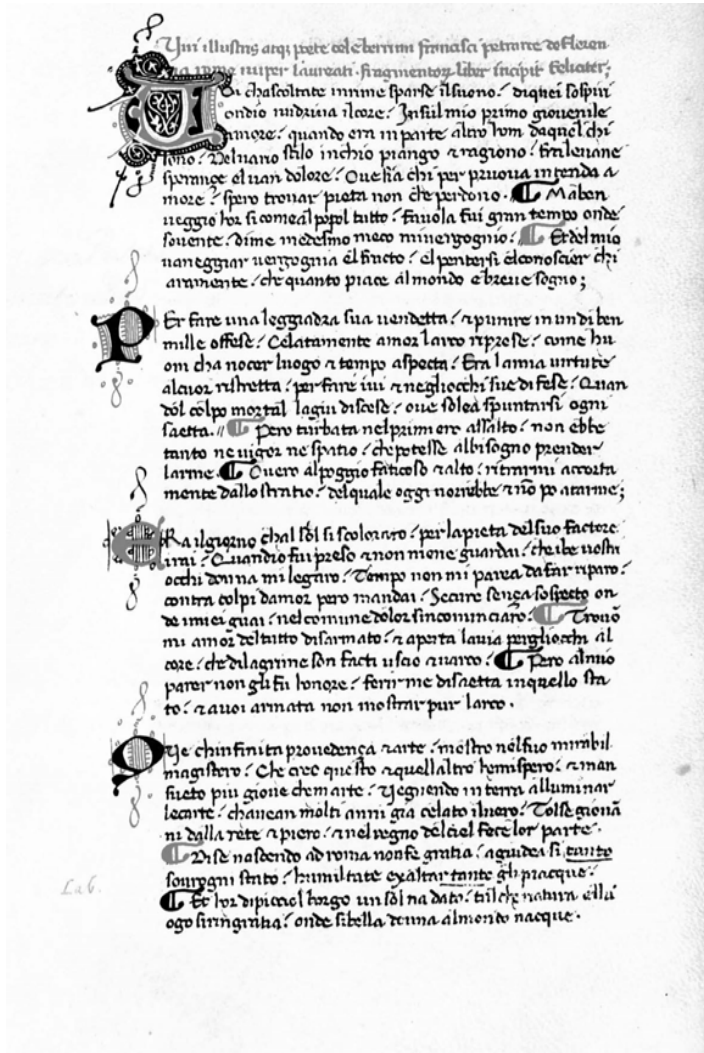 Viri illustris atq; poete celeberrimi francisci petrarce de floren
tia rome nuper laureati. fragmentor liber incipit feliciter;
VOi chascoltate inrime sparse ilsuono. diquei sospiri
ondio nudriua ilcore. Insul mio primo giouenile
errore. quando era inparte altro hom daquel chi
sono. Deluario stilo inchio piango et ragiono. fralevane
sperançe eluan dolore. Oue sia chi per pruoua intenda a
more. spero trouar pieta non che perdono. ¶ Ma ben
ueggio hor si come al popol tutto. fauola fui gran tempo onde
souente. dime medesmo meco miuergognio. ¶ Et del mio
uaneggiar uergognia el fructo. el pentersi elconoscier chi
aramente. che quanto piace al mondo e breue sogno;
PEr fare una leggiadra sua uendetta. et punire in un di ben
mille offese. Celatamente amor larco riprese. come hu
om cha nocer luogo et tempo aspecta. Era lamia uirtute
alcuor ristretta. per fare iui et negliocchi sue difese. Quan
dol colpo mortal lagiu discese. oue solea spuntarsi ogni
saetta. // ¶ Pero turbata nel primiero assalto. non ebbe
tanto ne uigor ne spatio. che potesse al bisogno prender
larme. ¶ Ouero alpoggio faticoso et alto. ritrarmi accorta
mente dallo stratio. delquale oggi uorrebbe et nõ po atarme;
ERa ilgiorno chal sol si scoloraro. per lapieta delsuo factore
irai. Quandio fui preso et non mene guardai. che ibe uostri
occhi donna mi legaro. Tempo non mi parea dafar riparo.
contra colpi damor pero mandai. Secure sença sospecto on
de i miei guai. nel comune dolor sincominciaro. ¶ Trouo
mi amor deltutto disarmato. et aperta lauia pergliocchi al
core. che dilagrime son facti uscio et uarco. ¶ Pero al mio
parer non gli fu honore. ferir me disaetta inquello sta
to. et auoi armata non mostrar pur larco.
QUe chinfinita prouedença et arte. mostro nelsuo mirabil
magistero. Che creo questo et quellaltro hemispero. et man
sueto piu gioue chemarte. Vegnendo interra alluminar
lecarte. chauean molti anni gia celato iluero. Tolse giouã
ni dalla rete et piero. et nel regno delciel fece lor parte.
¶ Di se nascendo ad roma nonfe gratia. aguidea si tanto
sourogni stato. humiltate exaltar tante gli piacque.
¶ Et hor dipicciol borgo un sol na dato. tal che natura el lu
ogo siringratia. onde sibella donna almondo nacque.
Lab.